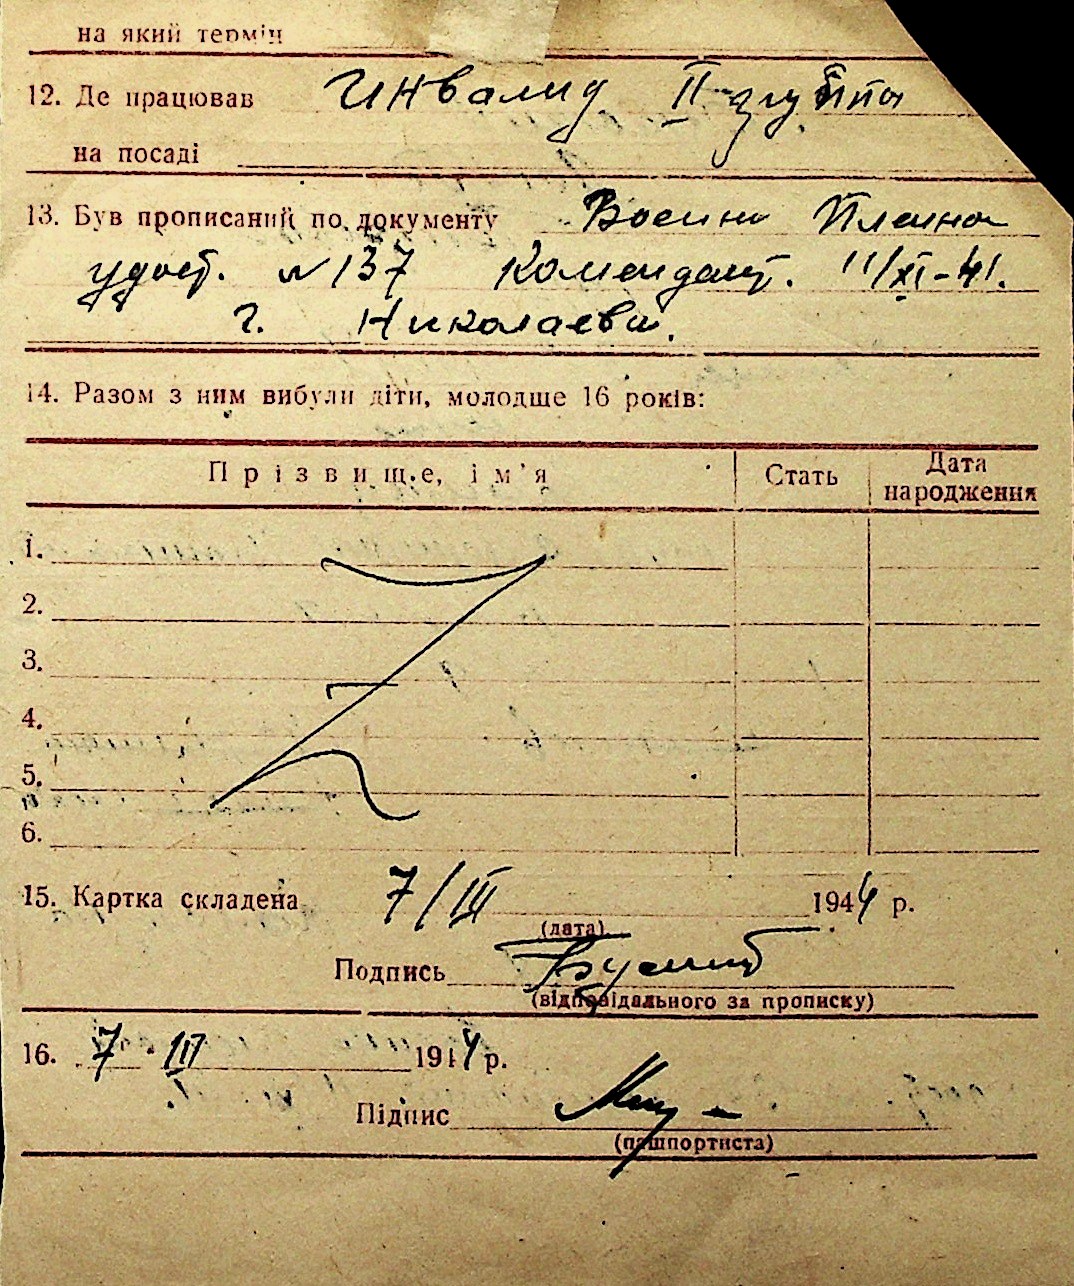 на який термін
12. Де працював Инвалид II группы
на посаді
13. Був прописаний по документу Военно Пленно
удост. № 137 Комендант. 11/XI-41.
г. Николаева.
14. Разом з ним вибули діти, молодше 16 років:
Прізвище, ім'я Стать Дата народження
1.
2.
3.
4.
5.
6.
15. Картка складена 7/III 1944 р.
(дата)
Подпись
(відповідального за прописку)
16. 7 · III 1944 р.
Підпис
(пашпортиста)